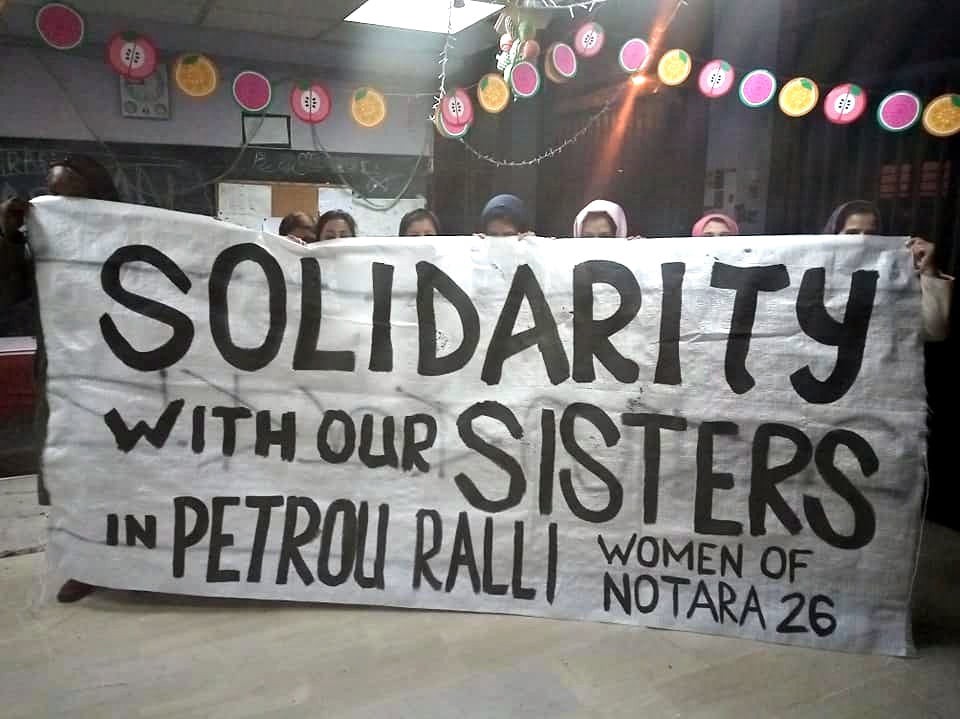 SOLIDARITY
WITH OUR SISTERS
IN PETROU RALLI
WOMEN OF
NOTARA 26